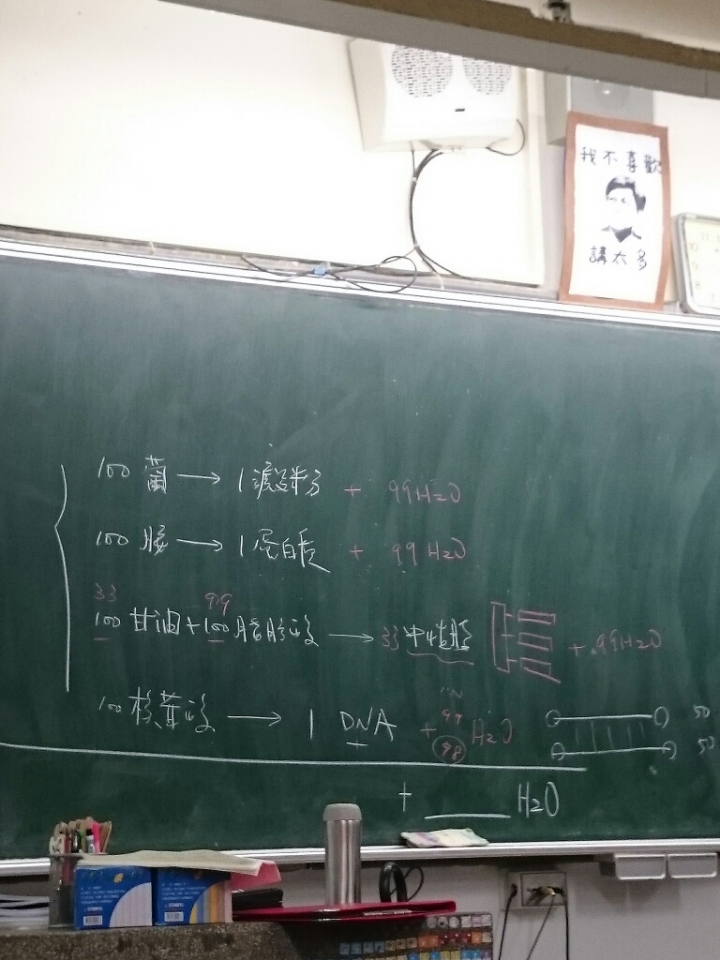 我不喜歡
講太多
100 葡 → 1 澱粉 + 99H₂O
100 胺 → 1 蛋白質 + 99H₂O
33 99
100 甘油 + 100 脂肪酸 → 33 中性脂 + 99H₂O
100 核苷酸 → 1 DNA + 98 H₂O
50
50
+ ____ H₂O